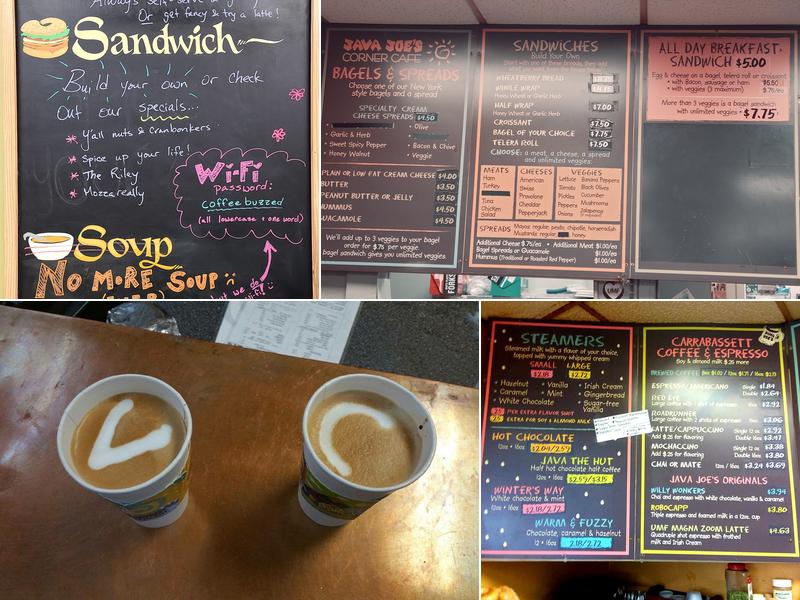 Always self-serve
Or get fancy & try a latte!
Sandwich
Build your own or check
Out our specials...
* Y'all nuts & Cranbonkers
* Spice up your life!
* The Riley
* Mozzareally
Wi-Fi
password:
coffeebuzzed
(all lowercase + one word)
Soup
NO MORE SOUP
JAVA JOE'S
CORNER CAFE
BAGELS & SPREADS
Choose one of our New York
style bagels and a spread
SPECIALTY CREAM
CHEESE SPREADS $4.50
• Garlic & Herb
• Sweet Spicy Pepper
• Honey Walnut
• Olive
• Bacon & Chive
• Veggie
PLAIN OR LOW FAT CREAM CHEESE $4.00
BUTTER $3.50
PEANUT BUTTER OR JELLY $3.50
HUMMUS $4.50
GUACAMOLE $4.50
We'll add up to 3 veggies to your bagel
order for $.75 per veggie.
bagel sandwich gives you unlimited veggies
SANDWICHES
Build Your Own
Start with one of these breads, then add
WHEATBERRY BREAD
WHOLE WRAP
Honey Wheat or Garlic Herb
HALF WRAP $7.00
Honey Wheat or Garlic Herb
CROISSANT $7.50
BAGEL OF YOUR CHOICE $7.75
TELERA ROLL $7.50
CHOOSE: a meat, a cheese, a spread
and unlimited veggies:
MEATS
Ham
Turkey
Tuna
Chicken
Salad
CHEESES
American
Swiss
Provolone
Cheddar
Pepperjack
VEGGIES
Lettuce
Tomato
Pickles
Peppers
Onions
Banana Peppers
Black Olives
Cucumber
Mushrooms
Jalapenos
SPREADS
Mayos: regular, pesto, chipotle, horseradish
Mustards: regular, honey
Additional Cheese $.75/ea • Additional Meat $1.00/ea
Bagel Spreads or Guacamole $1.00/ea
Hummus (Traditional or Roasted Red Pepper) $1.00/ea
ALL DAY BREAKFAST
SANDWICH $5.00
Egg & cheese on a bagel, telera roll or croissant
• with Bacon, sausage or ham $5.50
• with veggies (3 maximum) $.75/ea
More than 3 veggies is a bagel sandwich
with unlimited veggies • $7.75
STEAMERS
Steamed milk with a flavor of your choice,
topped with yummy whipped cream
SMALL LARGE
$2.18 $2.72
• Hazelnut
• Caramel
• White Chocolate
• Vanilla
• Mint
• Irish Cream
• Gingerbread
• Sugar-free
Vanilla
PER EXTRA FLAVOR SHOT
EXTRA FOR SOY & ALMOND MILK
HOT CHOCOLATE
12oz • 16oz $2.04/2.59
JAVA THE HUT
Half hot chocolate half coffee
12oz • 16oz $2.59/$3.15
WINTER'S WAY
White chocolate & mint
12oz • 16oz $2.18/2.72
WARM & FUZZY
Chocolate, caramel & hazelnut
12 • 16oz 2.18/2.72
CARRABASSETT
COFFEE & ESPRESSO
Soy & almond milk $.25 more
BREWED COFFEE
ESPRESSO/AMERICANO Single $1.84
Double $2.64
RED EYE
Large coffee with 1 shot of espresso $2.92
ROADRUNNER
Large coffee with 2 shots of espresso $3.06
LATTE/CAPPUCCINO Single 12 oz $2.92
Add $.25 for flavoring Double 16oz $3.47
MOCHACCINO Single 12 oz $3.38
Add $.25 for flavoring Double 16oz $3.80
CHAI OR MATE 12oz / 16oz $3.24 $3.69
JAVA JOE'S ORIGINALS
WILLY WONKERS $3.94
Chai and espresso with white chocolate, vanilla & caramel
ROBOCAPP $3.80
Triple espresso and foamed milk in a 12oz. cup
UMF MAGNA ZOOM LATTE $4.63
Quadruple shot espresso with frothed
milk and Irish Cream